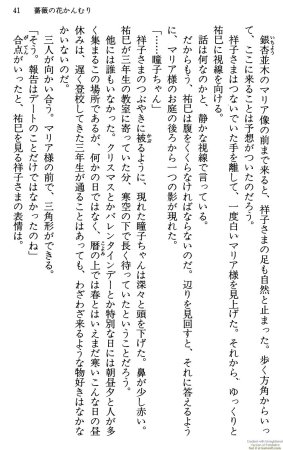 41　薔薇の花かんむり
銀杏並木のマリア像の前まで来ると、祥子さまの足も自然と止まった。歩く方角からいっ
て、ここに来ることは予想がついたのだろう。
祥子さまはつないでいた手を離して、一度白いマリア様を見上げた。それから、ゆっくりと
祐巳に視線を向ける。
話は何なのかと、静かな視線で言っている。
だからもう、祐巳は腹をくくらなければならないのだ。辺りを見回すと、それに答えるよう
に、マリア様のお庭の後ろから一つの影が現れた。
「……瞳子ちゃん」
祥子さまのつぶやきに被るように、現れた瞳子ちゃんは深々と頭を下げた。鼻が少し赤い。
祐巳が三年生の教室に寄っていた分、寒空の下で長く待っていたということだろう。
他には誰もいなかった。クリスマスとかバレンタインデーとか特別な日には朝昼夕と人が多
く集まるこの場所であるが、何かの日ではなく、暦の上では春とはいえまだ寒いこんな日の昼
休みは、遅く登校してきた三年生が通ることはあっても、わざわざ来るような物好きはなかな
かいないのだ。
三人が向かい合う。マリア様の前で、三角形ができる。
「そう。報告はデートのことだけではなかったのね」
合点がいったと、祐巳を見る祥子さまの表情は。